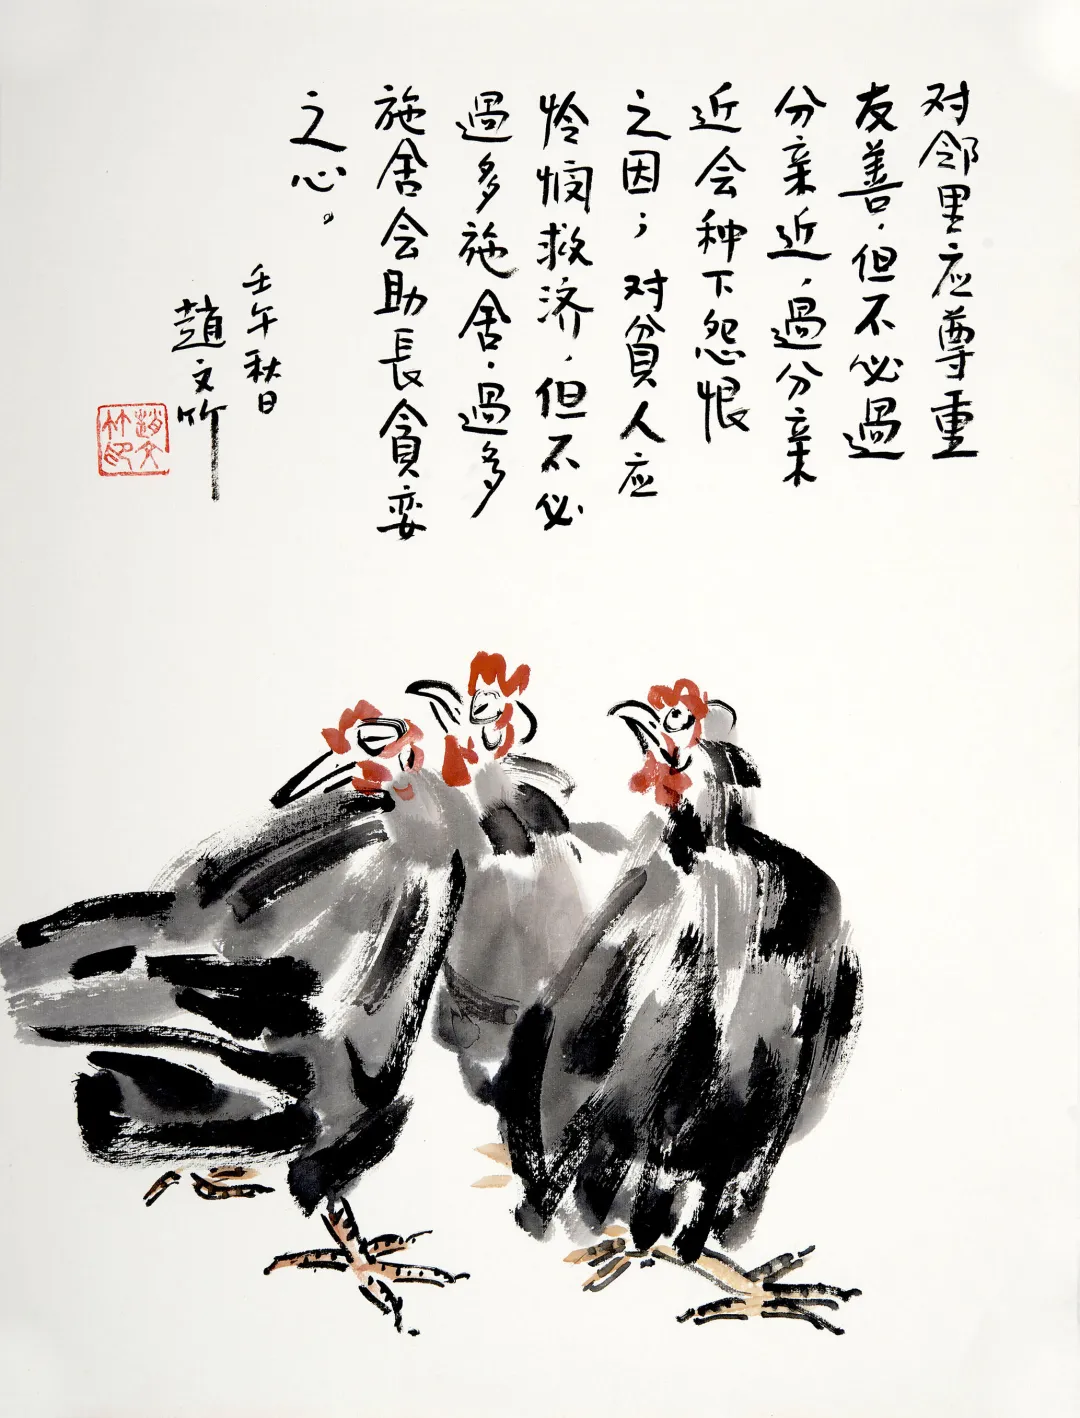 对邻里应尊重
友善，但不必過
分亲近，過分亲
近会种下怨恨
之因；对貧人应
怜悯救济，但不必
過多施舍，過多
施舍会助長貪娈
之心。
壬午秋日
趙文竹
趙文
竹印